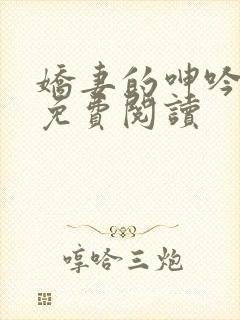 嬌妻的呻吟
免費閱讀
哼哈三炮